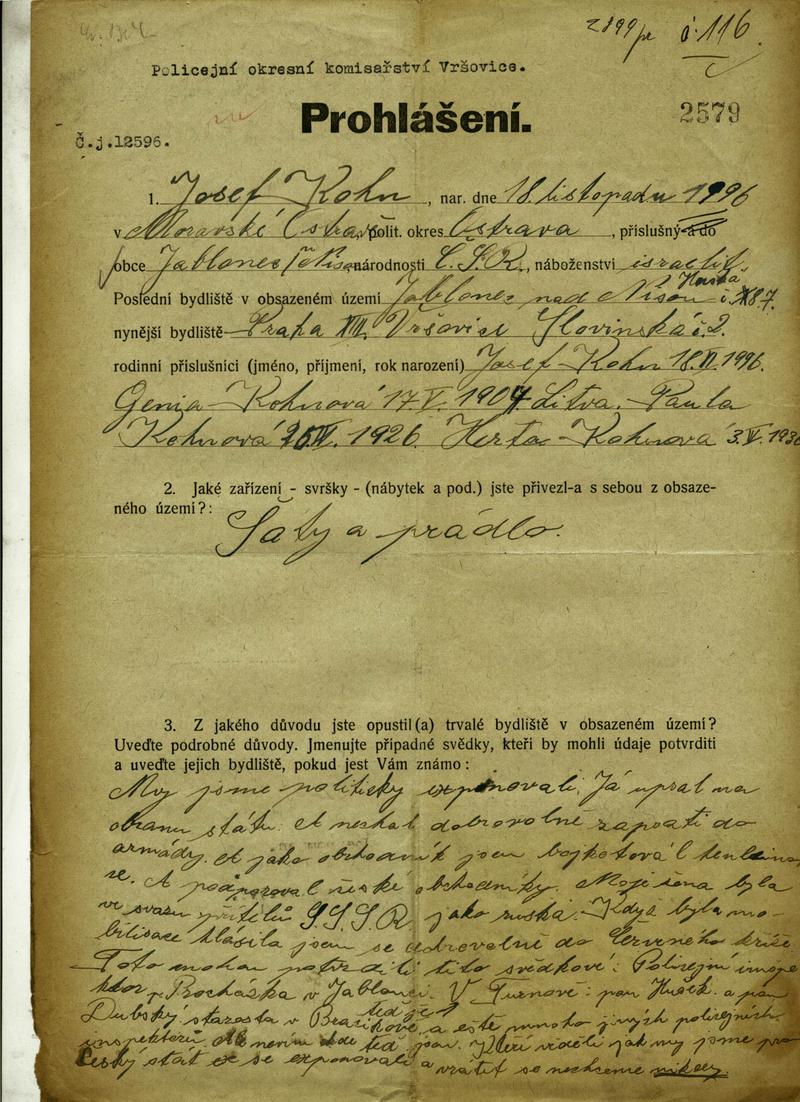 2899/pr č. 116
Policejní okresní komisařství Vršovice.
Prohlášení.
2579
č.j.12596.
1. Josef Kohn, nar. dne 18. listopadu 1996
v Moravské Ostravě, polit. okres Ostrava, příslušný do
obce Jablonec / národnosti Č.S.R., náboženství israelit.
Poslední bydliště v obsazeném území Jablonec nad Nisou 87.
nynější bydliště Praha XIII. Vršovice Slovinská č. 2.
rodinní příslušníci (jméno, příjmení, rok narození) Josef Kohn 18.11.1996.
Genia Kohnová 17.V.1904 Litva. Paula
Kohnová 1926. Herta Kohnová 3.V.
2. Jaké zařízení - svršky - (nábytek a pod.) jste přivezl-a s sebou z obsaze-
ného území?:
Šaty a prádlo.
3. Z jakého důvodu jste opustil(a) trvalé bydliště v obsazeném území?
Uveďte podrobné důvody. Jmenujte případné svědky, kteří by mohli údaje potvrditi
a uveďte jejich bydliště, pokud jest Vám známo:
My jsme politicky exponovali. Já upsal na
obranu státu. A nechal dobrovolně zapsati do
armády. A jako obchodník jsem bojkotoval
se. A podporoval české obchodníky. Moje žena byla
ve svazu přátelů S.S.S.R. jako ruská. Když byla mo-
bilisace hlásila jsem se dobrovolně do Červeného kříže.
Toto mohou potvrditi tito svědkové: Policejní inspe-
ktor p. Procháska v Jablonci. V Turnově: pan Hušek a pan
Dubský starosta v a ešte mnoho jiných policejních
inspektorů. není kde teď jsou. Kteří viděli jak my jsme pro
Český stát se exponovali a vrátit se nechceme nikdy.